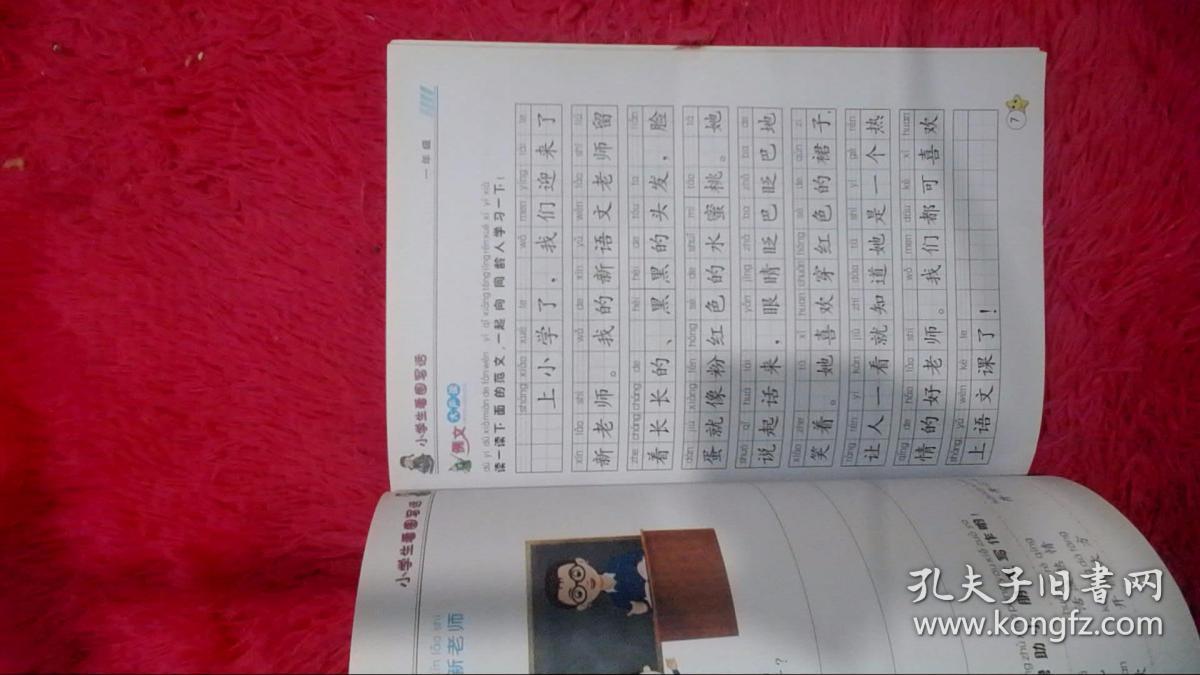 小学生看图写话
一年级
例文
dú yi dú xià miàn de fàn wén yì qǐ xiàng tóng líng rén xué xí yí xià
读一读下面的范文，一起向同龄人学习一下！
shàng xiǎo xué le wǒ men yíng lái le
上小学了，我们迎来了
xīn lǎo shī wǒ de xīn yǔ wén lǎo shī liú
新老师。我的新语文老师留
zhe cháng cháng de hēi hēi de tóu fa liǎn
着长长的、黑黑的头发，脸
dàn jiù xiàng fěn hóng sè de shuǐ mì táo tā
蛋就像粉红色的水蜜桃。她
shuō qǐ huà lái yǎn jīng zhǎ ba zhǎ ba de
说起话来，眼睛眨巴眨巴地
xiào zhe tā xǐ huan chuān hóng sè de qún zi
笑着。她喜欢穿红色的裙子，
ràng rén yí kàn jiù zhī dào tā shì yí gè rè
让人一看就知道她是一个热
qíng de hǎo lǎo shī wǒ men dōu kě xǐ huan
情的好老师。我们都可喜欢
shàng yǔ wén kè le
上语文课了！
7
小学生看图写话
īn lǎo shī
新老师
孔夫子旧书网
www.kongfz.com